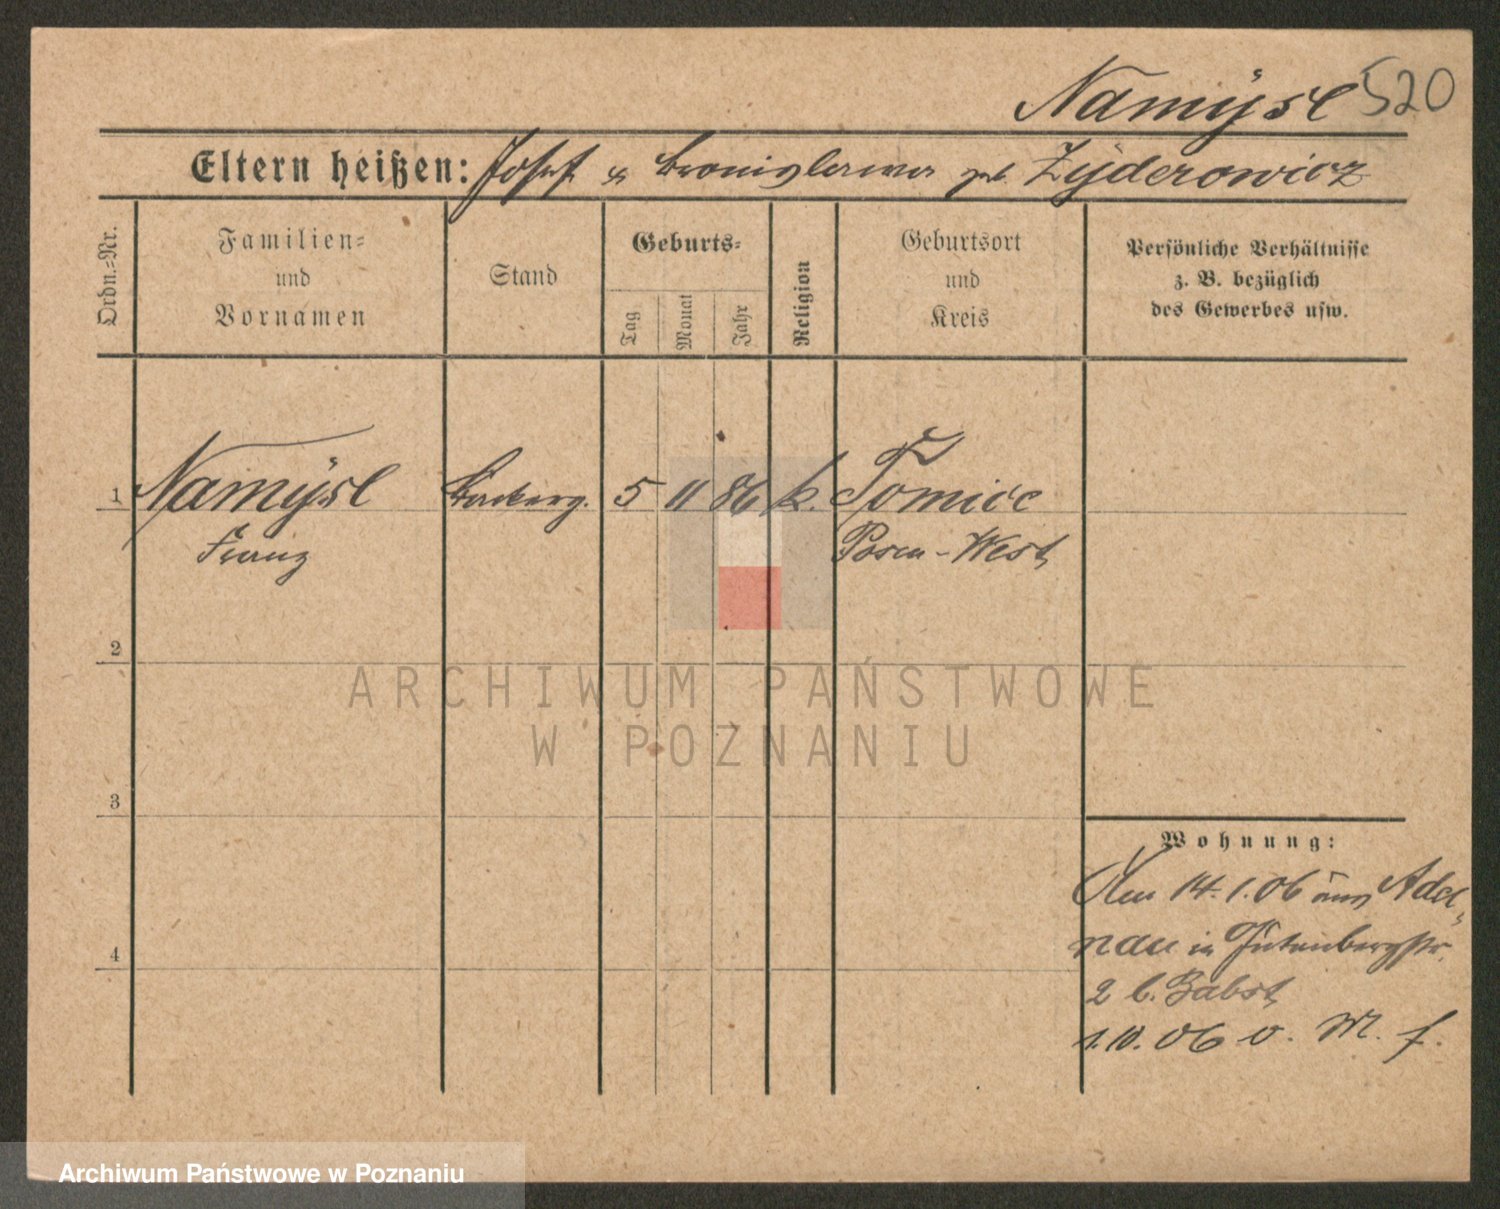 Namÿsl 520
Eltern heißen: Josef u Bronislawa geb. Zÿderowicz
Ordn.=Nr.
Familien=
und
Vornamen
Stand
Geburts=
Tag
Monat
Jahr
Religion
Geburtsort
und
Kreis
Persönliche Verhältnisse
z. B. bezüglich
des Gewerbes usw.
1 Namÿsl 5 11 86 k. Tomice
Franz Posen-West
2
ARCHIWUM PAŃSTWOWE
W POZNANIU
3
Wohnung:
Am 14.1.06 aus Adel-
4 nau in Gutenbergstr.
2 b. Babst
1.10.06 o. M. f.
Archiwum Państwowe w Poznaniu